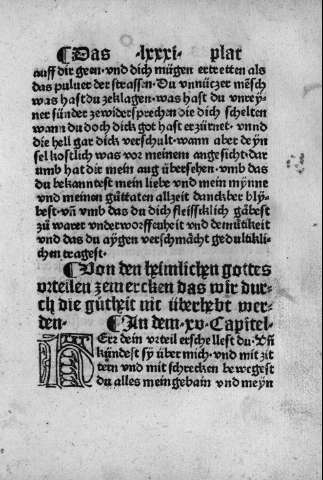 ¶Das ·lxxxi· plat
auff dir geen · vnd dich mügen ertretten als
das puluer der strassen · Du vnnüczer mēsch
was hast du zeklagen · was hast du vnrey⸗
ner sünder zewidersprechen die dich schelten
wann du doch dick got hast erzürnet · vnnd
die hell gar dick verschult · wann aber deyn
sel kostlich was vor meinem angesicht · dar
umb hat dir mein aug übersehen · vmb das
du bekanntest mein liebe vnd mein mynne
vnd meinen güttaten allzeit danckber bly⸗
best · vn̄ vmb das du dich fleissicklich gäbest
zů warer vnderworffenheit vnd demütikeit
vnd das du aygen verschmächt gedultikli⸗
chen tragest ·
¶Von den heimlichen gottes
vrteilen zemercken das wir dur⸗
ch die gütheit nit überhebt wer⸗
den · ¶In dem · xv · Capitel ·
HErr dein vrteil erschellest du · Vn̄
kündest sy über mich · vnd mit zit
tern vnd mit schrecken bewegest
du alles mein gebain vnd meyn